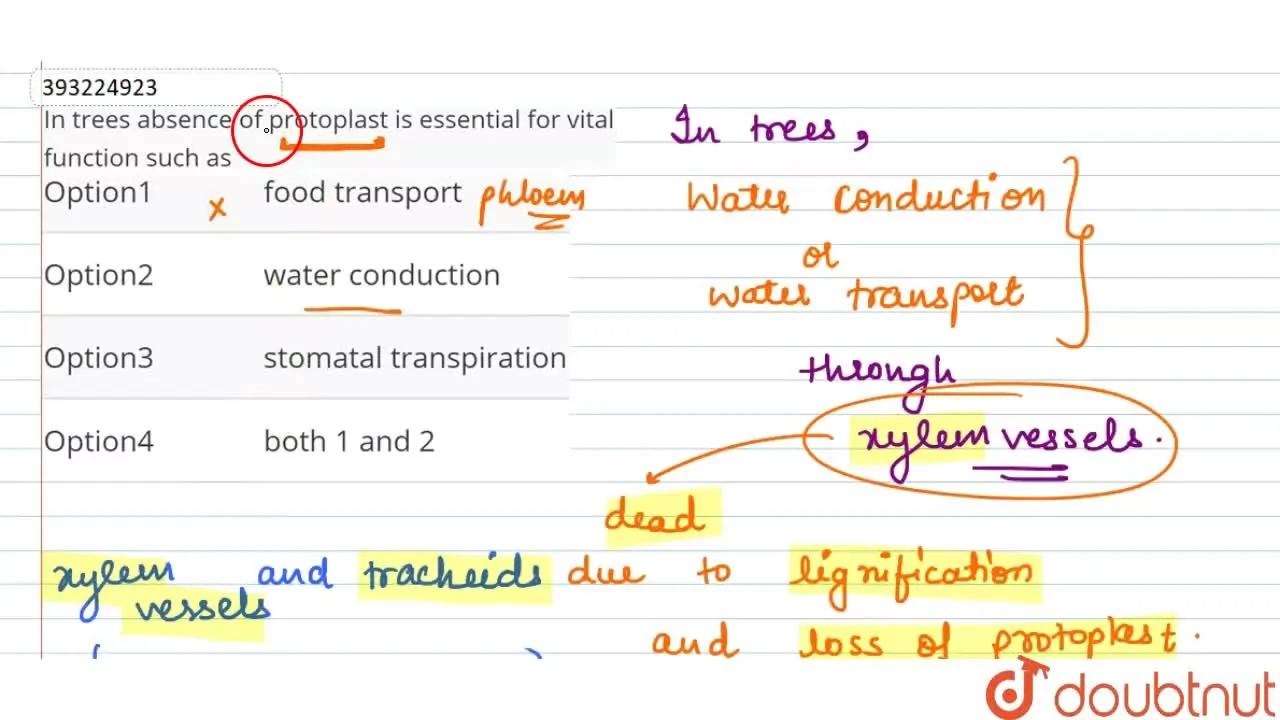 393224923
In trees absence of protoplast is essential for vital
function such as
Option1 x food transport phloem
Option2 water conduction
Option3 stomatal transpiration
Option4 both 1 and 2
In trees,
Water conduction
or
water transport
through
xylem vessels.
dead
xylem vessels and tracheids due to lignification
and loss of protoplast.
doubtnut